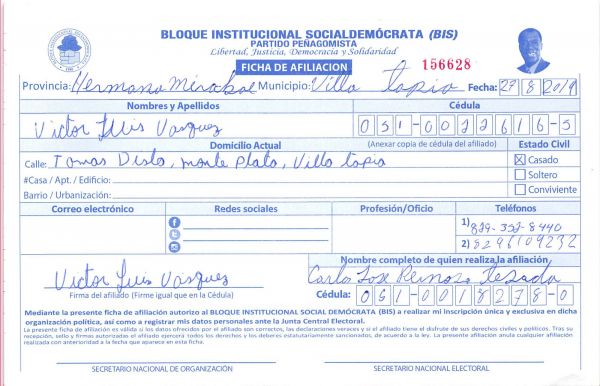 BLOQUE INSTITUCIONAL SOCIALDEMÓCRATA (BIS)
PARTIDO PEÑAGOMISTA
Libertad, Justicia, Democracia y Solidaridad
FICHA DE AFILIACION 156628
Provincia: Hermana Mirabal Municipio: Villa tapia Fecha: 27 8 2019
Nombres y Apellidos Cédula
Victor Luis Vasquez 051-0022616-5
Domicilio Actual (Anexar copia de cédula del afiliado) Estado Civil
Calle: Tomas Disla, monte Plata, Villa tapia X Casado
#Casa / Apt. / Edificio: Soltero
Barrio / Urbanización: Conviviente
Correo electrónico Redes sociales Profesión/Oficio Teléfonos
1) 829-352-8440
2) 8296109232
Nombre completo de quien realiza la afiliación
Victor Luis Vasquez Carlos Jose Reinoso
Firma del afiliado (Firme igual que en la Cédula) Cédula: 051-0018278-0
Mediante la presente ficha de afiliación autorizo al BLOQUE INSTITUCIONAL SOCIAL DEMÓCRATA (BIS) a realizar mi inscripción única y exclusiva en dicha
organización política, así como a registrar mis datos personales ante la Junta Central Electoral.
La presente ficha de afiliación es válida si los datos ofrecidos por el afiliado son correctos, las declaraciones veraces y si el afiliado tiene el disfrute de sus derechos civiles y políticos. Tras su
recepción, sello y firmas autorizadas el afiliado ejercerá todos los derechos y los deberes estatutariamente sancionados, de acuerdo a la ley. La presente afiliación anula cualquier afiliación
realizada con anterioridad a la fecha que aparece en esta ficha.
SECRETARIO NACIONAL DE ORGANIZACIÓN SECRETARIO NACIONAL ELECTORAL